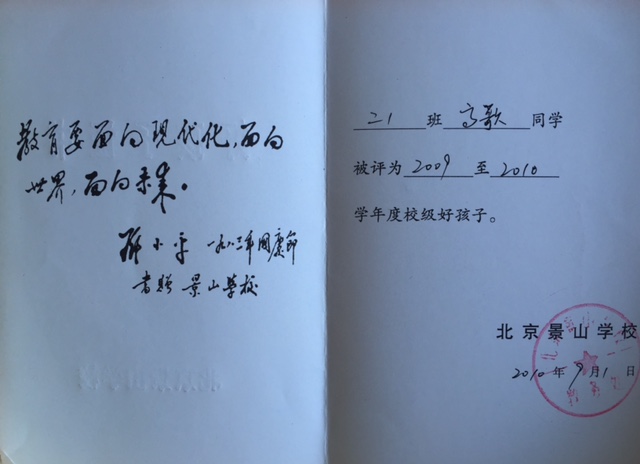 教育要面向现代化,面向
世界,面向未来。
邓小平 一九八三年国庆节
书赠 景山学校
二1 班 高歌 同学
被评为 2009 至 2010
学年度校级好孩子。
北京景山学校
2010年9月1日